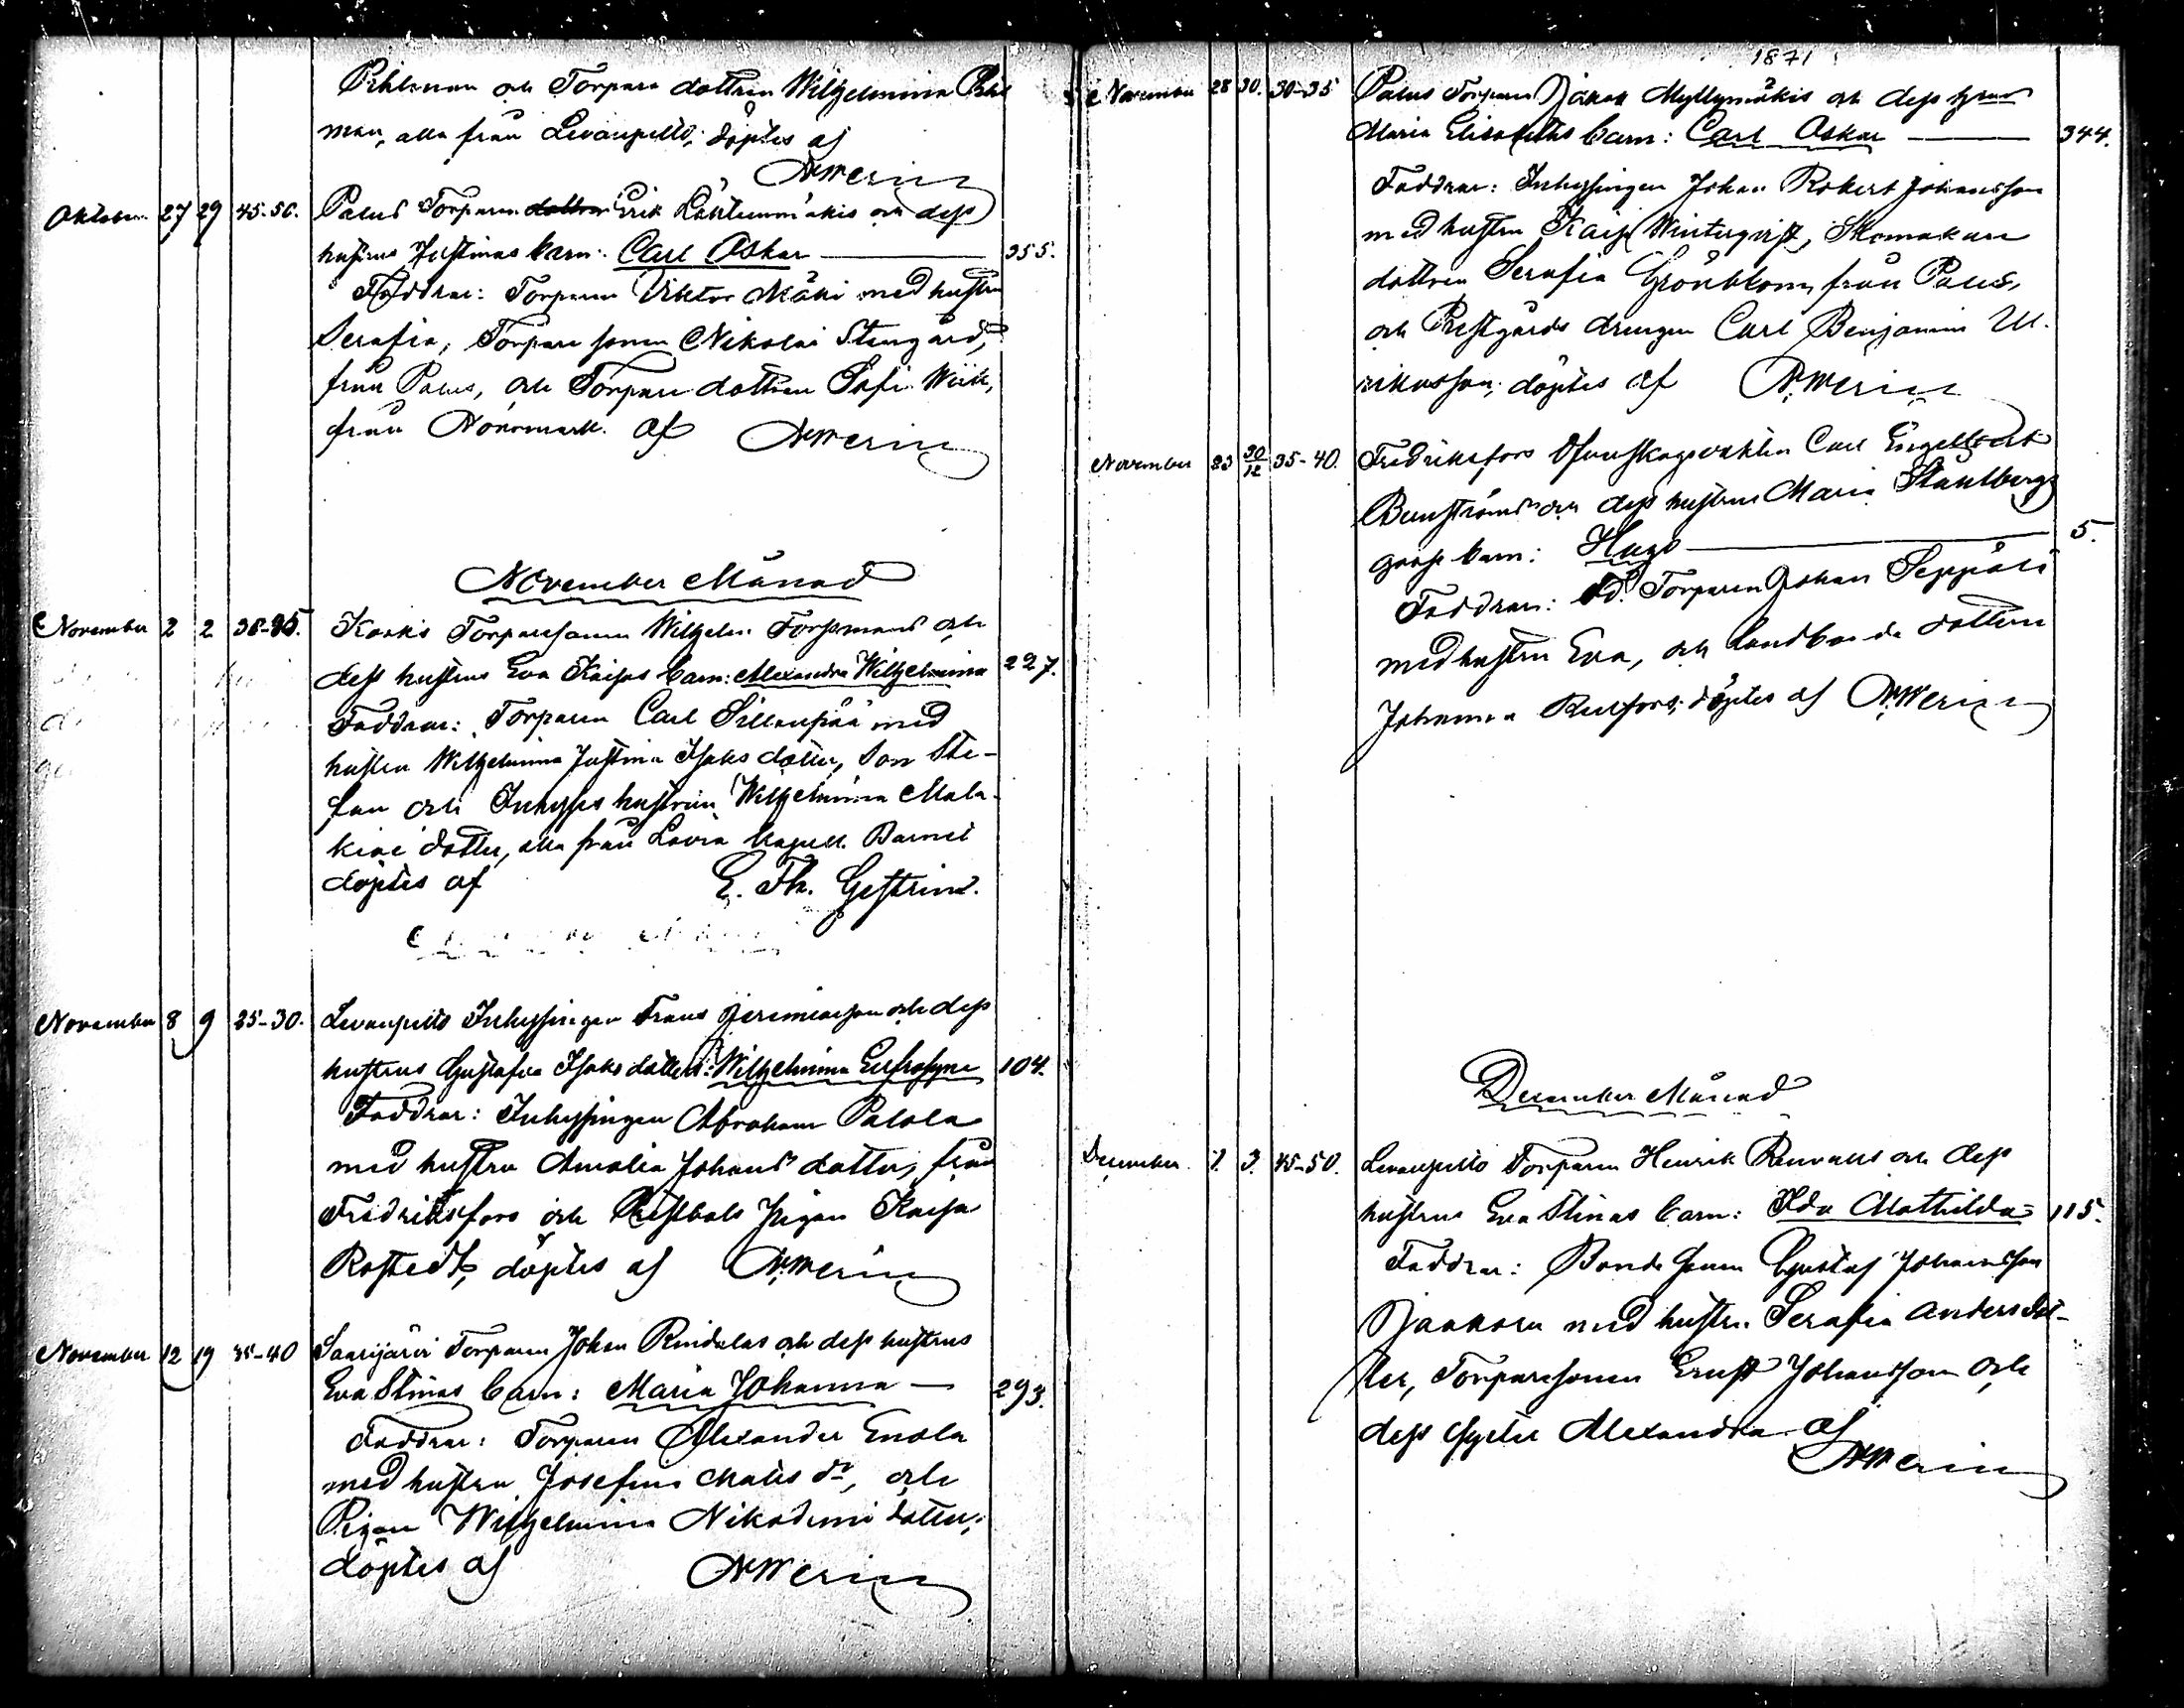 Pihlman och Torpare dottren Wilhelmina Pihl
man, alla från Levanpelto; döptes af
A Merin
Oktober 27 29 45-50. Palus Torparen Erik Lähteenmäkis och dess
hustrus Justinas barn: Carl Oskar 355.
Faddrar: Torparen Viktor Mäki med hustru
Serafia, Torpare sonen Nikolai Stengård,
från Palus, och Torpare dottren Sofi Wiik,
från Norrmark. af A Merin
November Månad
November 2 2 30-35. Koskis Torparesonen Wilhelm Forssmans och
dess hustrus Eva Kaisas barn: Alexandra Wilhelmina 227.
Faddrar: Torparen Carl Sillanpää med
hustru Wilhelmina Justina Isaks dotter, Son Ste-
fan och Inhyses hustrun Wilhelmina Mala-
kias dotter, alla från Lavia kapell. Barnet
döptes af E. Th. Gestrin.
November 8 9 25-30. Levanpelto Inhysingen Frans Jeremiasson och dess
hustrus Gustafva Isaks dotters: Wilhelmina Eufrosyne 104.
Faddrar: Inhysingen Abraham Palola
med hustru Amalia Johans dotter, från
Fredriksfors och Prestbols pigan Kaisa
Rostedt, döptes af A. Merin
November 12 19 35-40 Saarijärvi Torparen Johan Rindalas och dess hustrus
Eva Stinas barn: Maria Johanna 293.
Faddrar: Torparen Alexander Enola
med hustru Josefina Matts dr, och
Pigan Wilhelmina Nikodemi dotter;
döptes af A Merin
1871
November 28 30. 30-35 Palus Torparen Jakob Myllymäkis och dess hustrus
Maria Elisabeths barn: Carl Oskar 344.
Faddrar: Inhysingen Johan Robert Johansson
med hustru Kaisa Winterqvist, Skomakare
dottren Serafia Grönblom från Palus,
och Prestgårds drengen Carl Benjamin Ul-
rikasson; döptes af A. Merin
November 23 30/12 35-40. Fredriksfors Carl Engelbert
och dess hustrus Maria Ståhlbergs
barn: Hugo 5.
Faddrar: Torparen Johan Seppälä
med hustru Eva, och Landbonde dottren
Johanna döptes af A. Merin
December Månad
December 1. 3. 45-50. Levanpelto Torparen Henrik Renvalls och dess
hustrus Eva Stinas barn: Ida Mathilda 115.
Faddrar: Bonde sonen Gustaf Johansson
Jaakola med hustru Serafia Anders dot-
ter, Torparesonen Ernst Johansson och
dess syster Alexandra af
A Merin